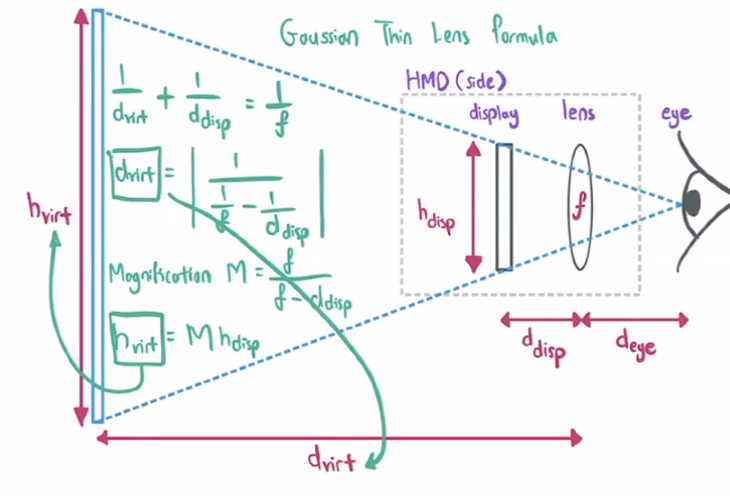 Gaussian Thin Lens formula
1/d_virt + 1/d_disp = 1/f
d_virt = | 1 / (1/f - 1/d_disp) |
Magnification M = f / (f - d_disp)
h_virt = M h_disp
h_virt
HMD (side)
display lens eye
h_disp
f
d_disp d_eye
d_virt